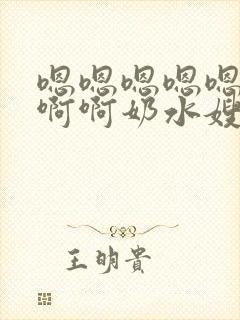 嗯嗯嗯嗯嗯
啊啊奶水嫂
王明贵